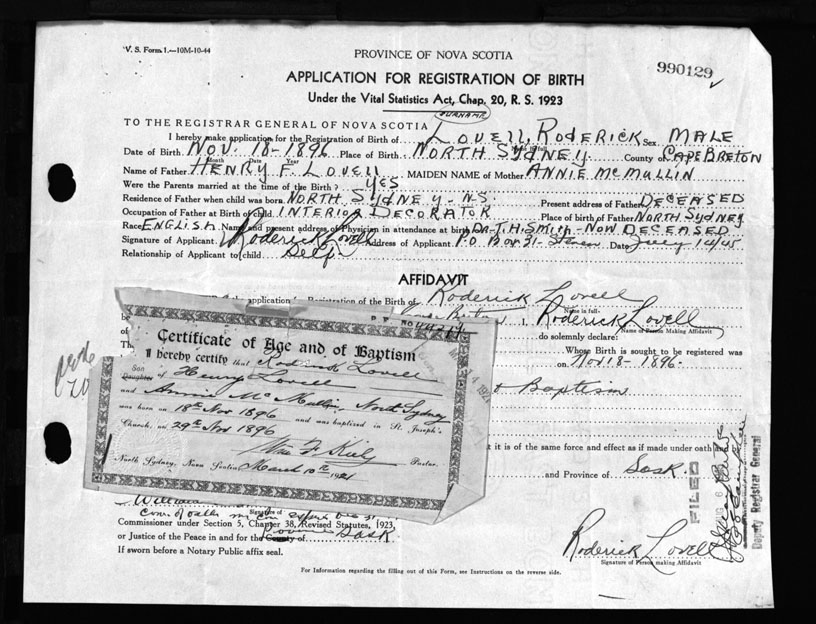 V. S. Form 1.—10M-10-44
PROVINCE OF NOVA SCOTIA
990129
APPLICATION FOR REGISTRATION OF BIRTH
Under the Vital Statistics Act, Chap. 20, R. S. 1923
SURNAME
TO THE REGISTRAR GENERAL OF NOVA SCOTIA
I hereby make application for the Registration of Birth of LOVELL, RODERICK Sex MALE
Date of Birth NOV. 18-1896 Place of Birth NORTH SYDNEY. County of CAPE BRETON
Month Date Year
Name of Father HENRY F. LOVELL MAIDEN NAME of Mother ANNIE McMULLIN
Were the Parents married at the time of the Birth? YES
Residence of Father when child was born NORTH SYDNEY-N.S. Present address of Father DECEASED
Occupation of Father at Birth of child INTERIOR DECORATOR Place of birth of Father NORTH SYDNEY
Race ENGLISH Name and present address of Physician in attendance at birth DR. T. H. SMITH-NOW DECEASED
Signature of Applicant Roderick Lovell Address of Applicant P.O. Box 31- Date July 14/45
Relationship of Applicant to child Self
AFFIDAVIT
the application Registration of the Birth of Roderick Lovell
Name in full
Roderick Lovell
Name of Person Making Affidavit
do solemnly declare:
Whose Birth is sought to be registered was
on Nov 18-1896.
Baptism
it is of the same force and effect as if made under oath and
and Province of Sask
No 44214
Certificate of Age and of Baptism
I hereby certify that Roderick Lovell
Son
Daughter of Henry Lovell
and Annie McMullin, North Sydney
was born on 18th Nov 1896 and was baptized in St. Joseph's
Church, on 29th Nov 1896
Wm F Kiely Pastor.
North Sydney, Nova Scotia March 10th 1921
FILED
Deputy Registrar General
William
Signature of
Commissioner under Section 5, Chapter 38, Revised Statutes, 1923,
or Justice of the Peace in and for the County of Province Sask
If sworn before a Notary Public affix seal.
Roderick Lovell
Signature of Person making Affidavit
For Information regarding the filling out of this Form, see Instructions on the reverse side.